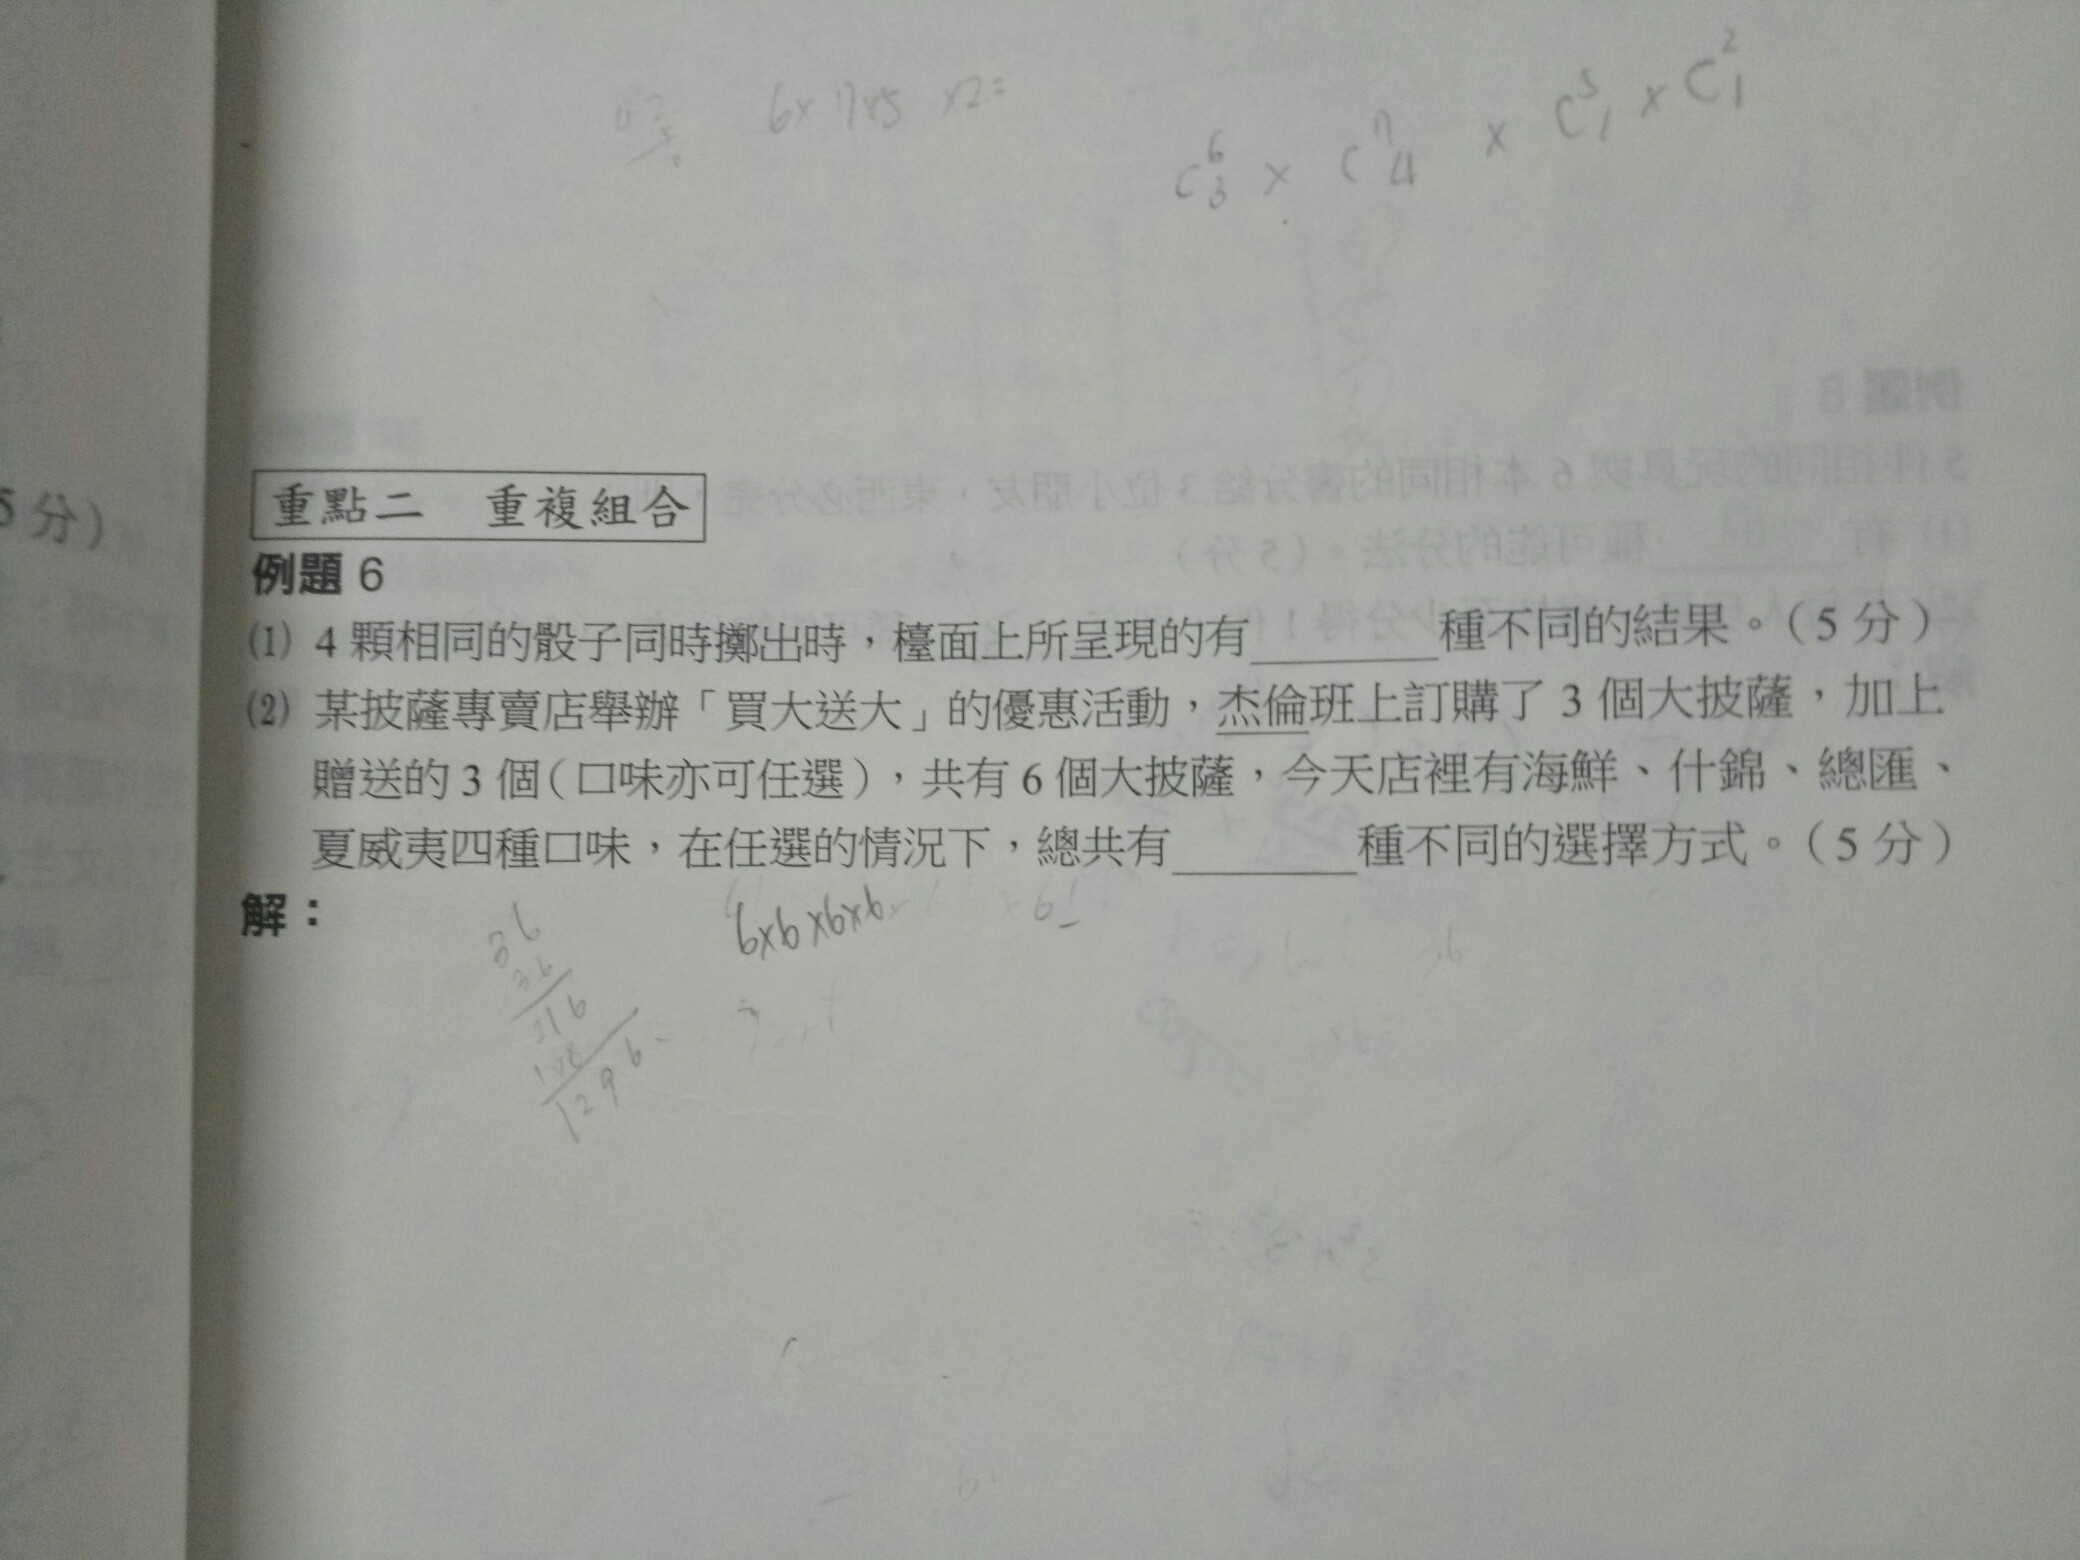 6×7×5 ×2=
C 6 3 × C 7 4 × C 5 1 × C 2 1
5分)
重點二 重複組合
例題 6
(1) 4 顆相同的骰子同時擲出時，檯面上所呈現的有________種不同的結果。（5 分）
(2) 某披薩專賣店舉辦「買大送大」的優惠活動，杰倫班上訂購了 3 個大披薩，加上
贈送的 3 個（口味亦可任選），共有 6 個大披薩，今天店裡有海鮮、什錦、總匯、
夏威夷四種口味，在任選的情況下，總共有________種不同的選擇方式。（5 分）
解：
6×6×6×6
36
36
216
108
1296